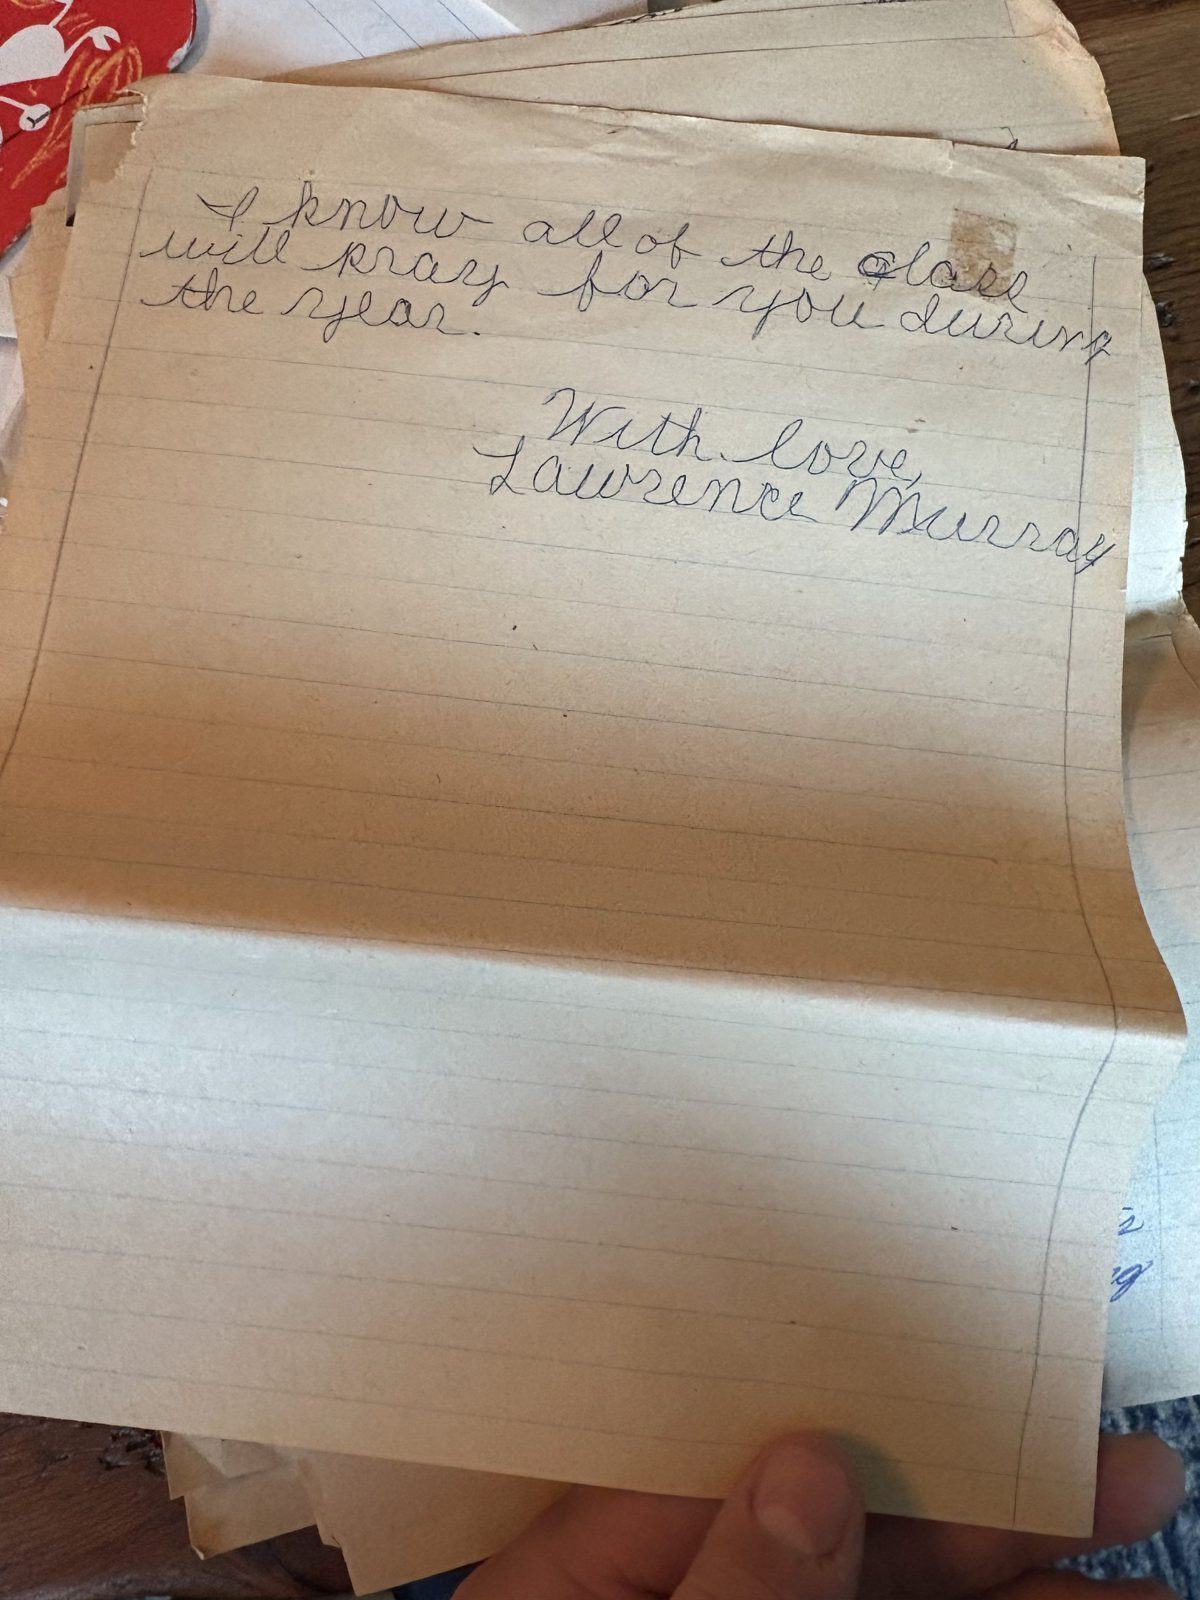 I know all of the class
will pray for you during
the year.
With love,
Lawrence Murray